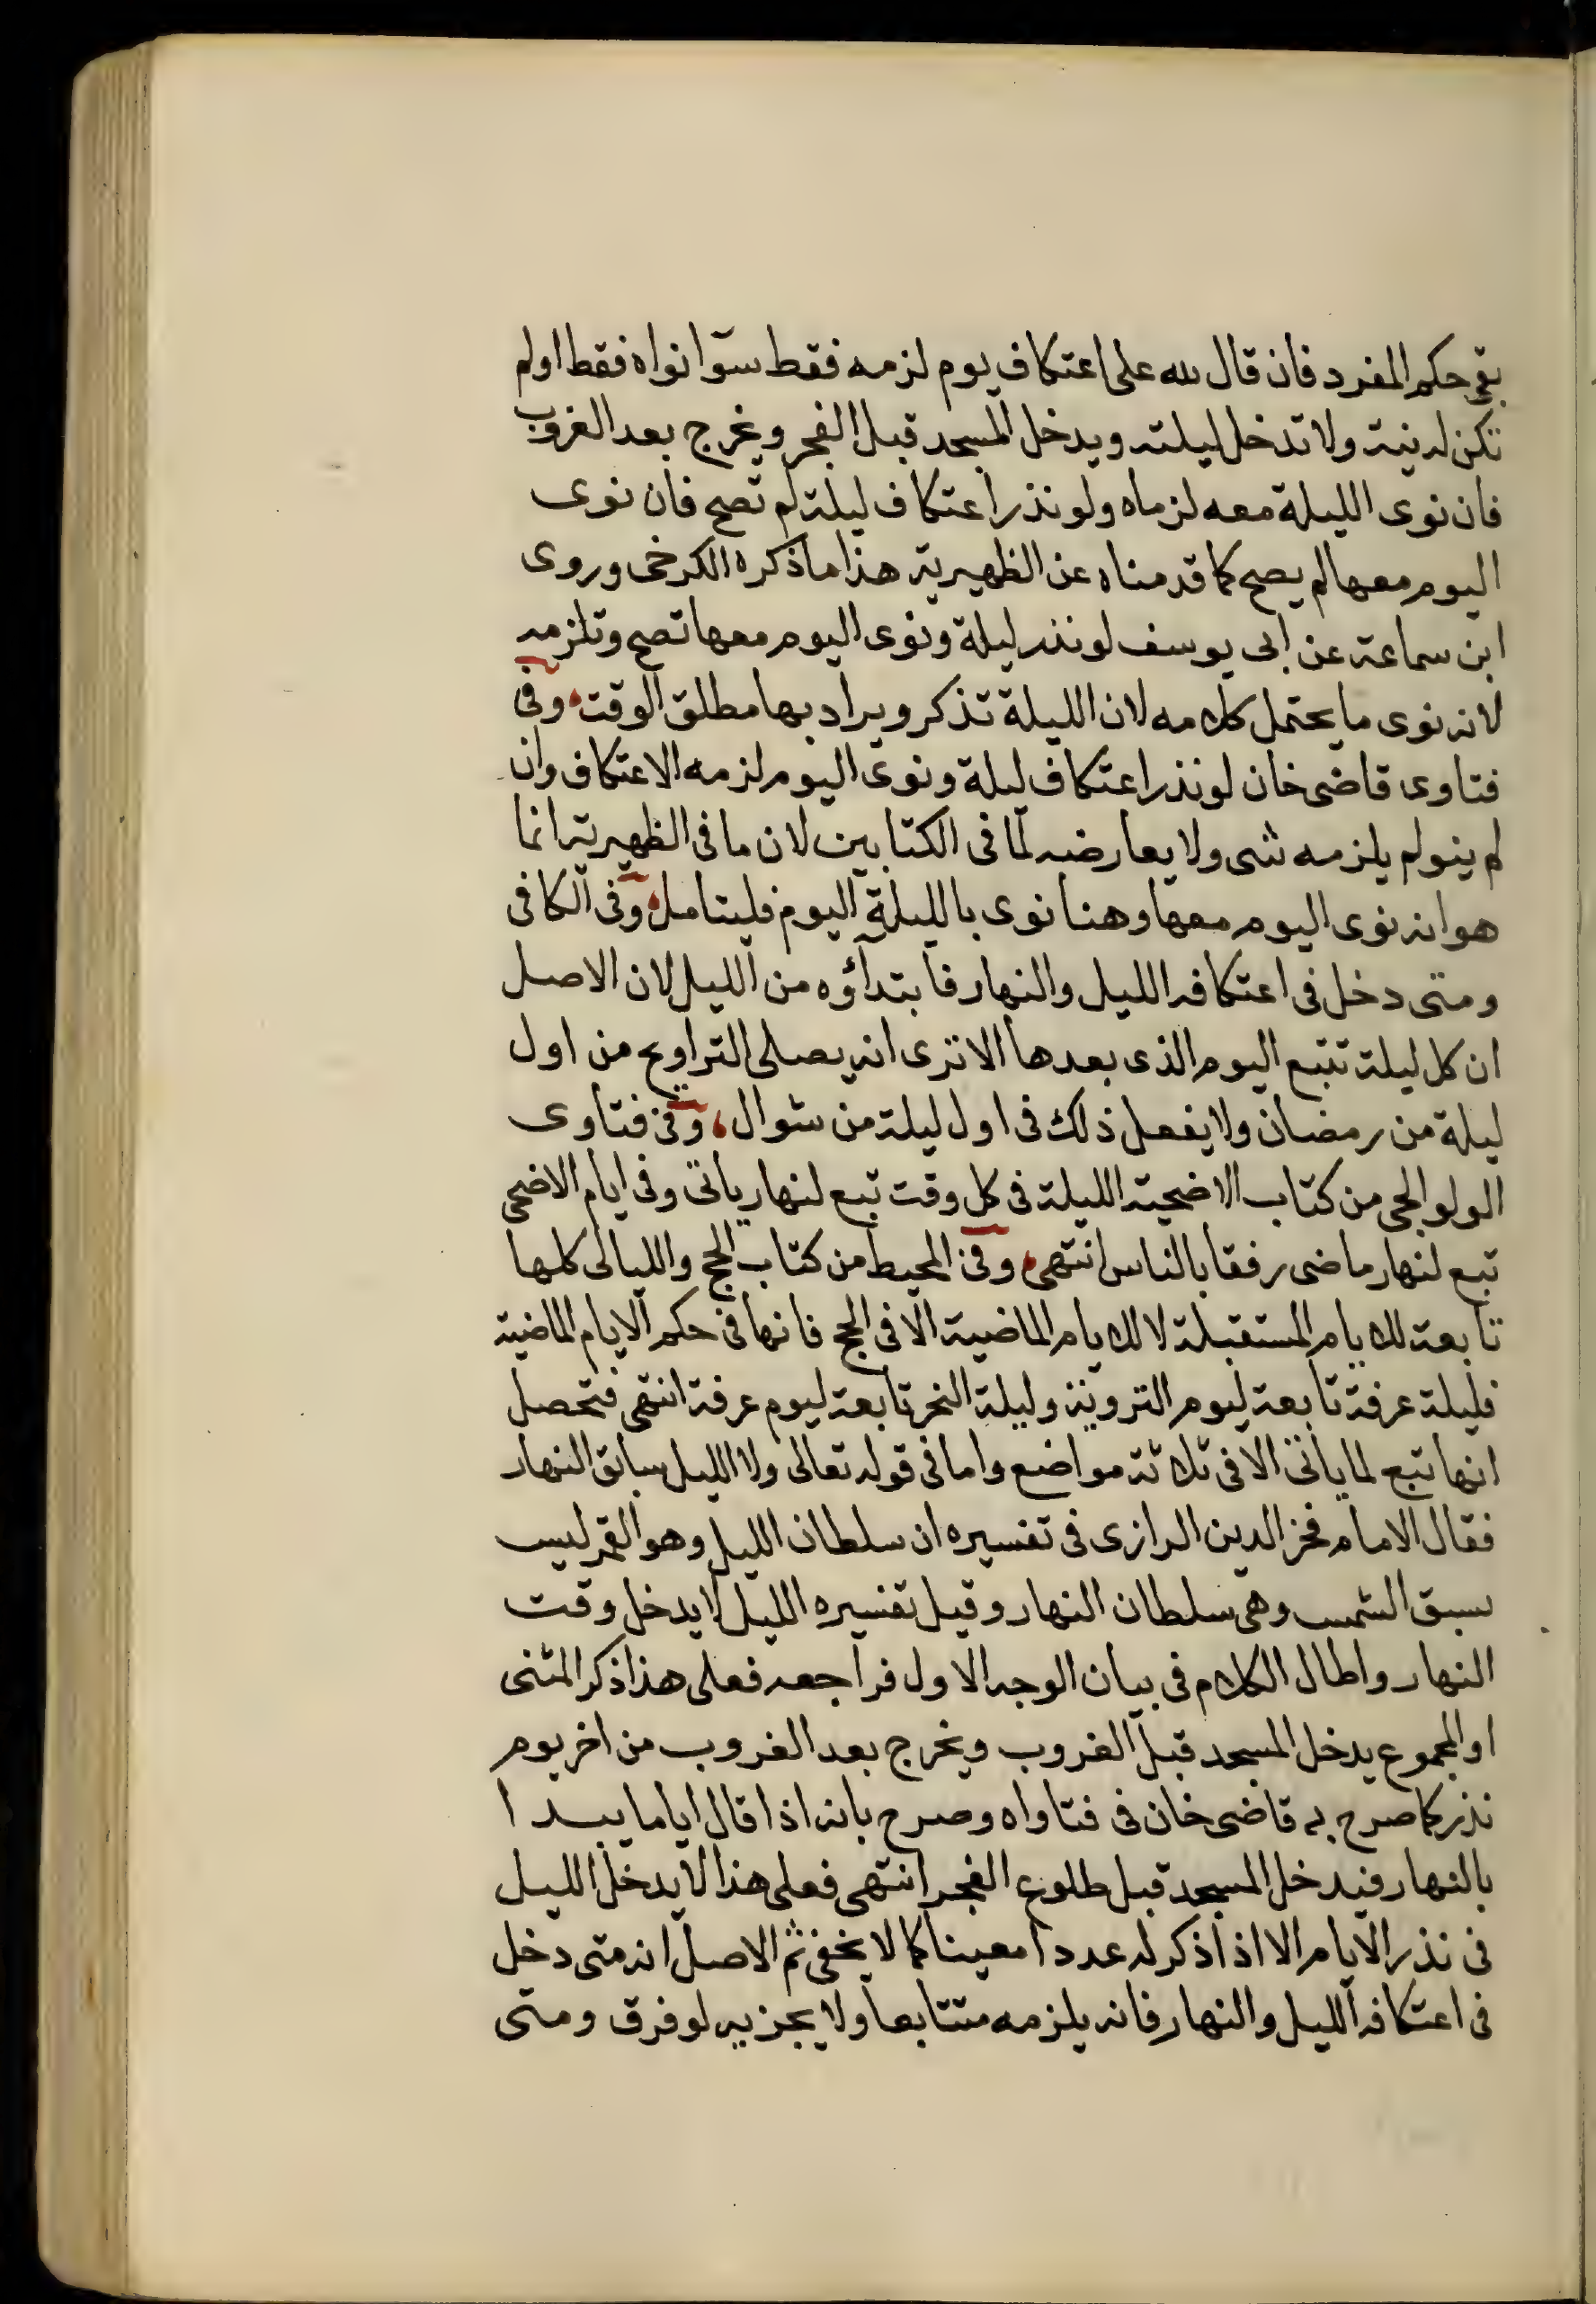 بقى حكم المفرد فان قال لله على اعتكاف يوم لزمه فقط سوآ نواه فقط اولم
تكن له نية ولا تدخل ليلته ويدخل المسجد قبل الفجر ويخرج بعد الغروب
فان نوى الليلة معه لزماه ولو نذر اعتكاف ليلة لم تصح فان نوى
اليوم معها لم يصح كما قدمناه عن الظهيرية هذا ما ذكره الكرخى وروى
ابن سماعة عن ابى يوسف لو نذر ليلة ونوى اليوم معها تصح وتلزمه
لانه نوى ما يحتمل كلامه لان الليلة تذكر ويراد بها مطلق الوقت، وفى
فتاوى قاضى خان لو نذر اعتكاف ليلة ونوى اليوم لزمه الاعتكاف وان
لم ينو لم يلزمه شى ولا يعارضه لما فى الكتابين لان ما فى الظهيرية انما
هو انه نوى اليوم معها وهنا نوى بالليلة اليوم فليتامل، وفى الكافى
ومتى دخل فى اعتكافه الليل والنهار فابتدآؤه من الليل لان الاصل
ان كل ليلة تتبع اليوم الذى بعدها الا ترى انه يصلى التراويح من اول
ليلة من رمضان ولا يفعل ذلك فى اول ليلة من شوال، وفى فتاوى
الولوالجى من كتاب الاضحية الليلة فى كل وقت تبع لنهار ياتى وفى ايام الاضحى
تبع لنهار ماضى رفقا بالناس انتهى، وفى المحيط من كتاب الحج والليالى كلها
تابعة للايام المستقبلة لا للايام الماضية الا فى الحج فانها فى حكم الايام الماضية
فليلة عرفة تابعة ليوم التروية وليلة النحر تابعة ليوم عرفة انتهى فتحصل
انها تبع لما ياتى الا فى ثلاثة مواضع واما فى قوله تعالى ولا الليل سابق النهار
فقال الامام فخر الدين الرازى فى تفسيره ان سلطان الليل وهو القمر ليس
يسبق الشمس وهى سلطان النهار وقيل تفسيره الليل لا يدخل وقت
النهار واطال الكلام فى بيان الوجه الاول فراجعه فعلى هذا ذكر المثنى
او المجموع يدخل المسجد قبل الغروب ويخرج بعد الغروب من اخر يوم
نذر كما صرح به قاضى خان فى فتاواه وصرح بانه اذا قال اياما يبدا
بالنهار فيدخل المسجد قبل طلوع الفجر انتهى فعلى هذا لا يدخل الليل
فى نذر الايام الا اذا ذكر له عددا معينا كما لا يخفى ثم الاصل انه متى دخل
فى اعتكافه الليل والنهار فانه يلزمه متتابعا ولا يجزيه لو فرق ومتى